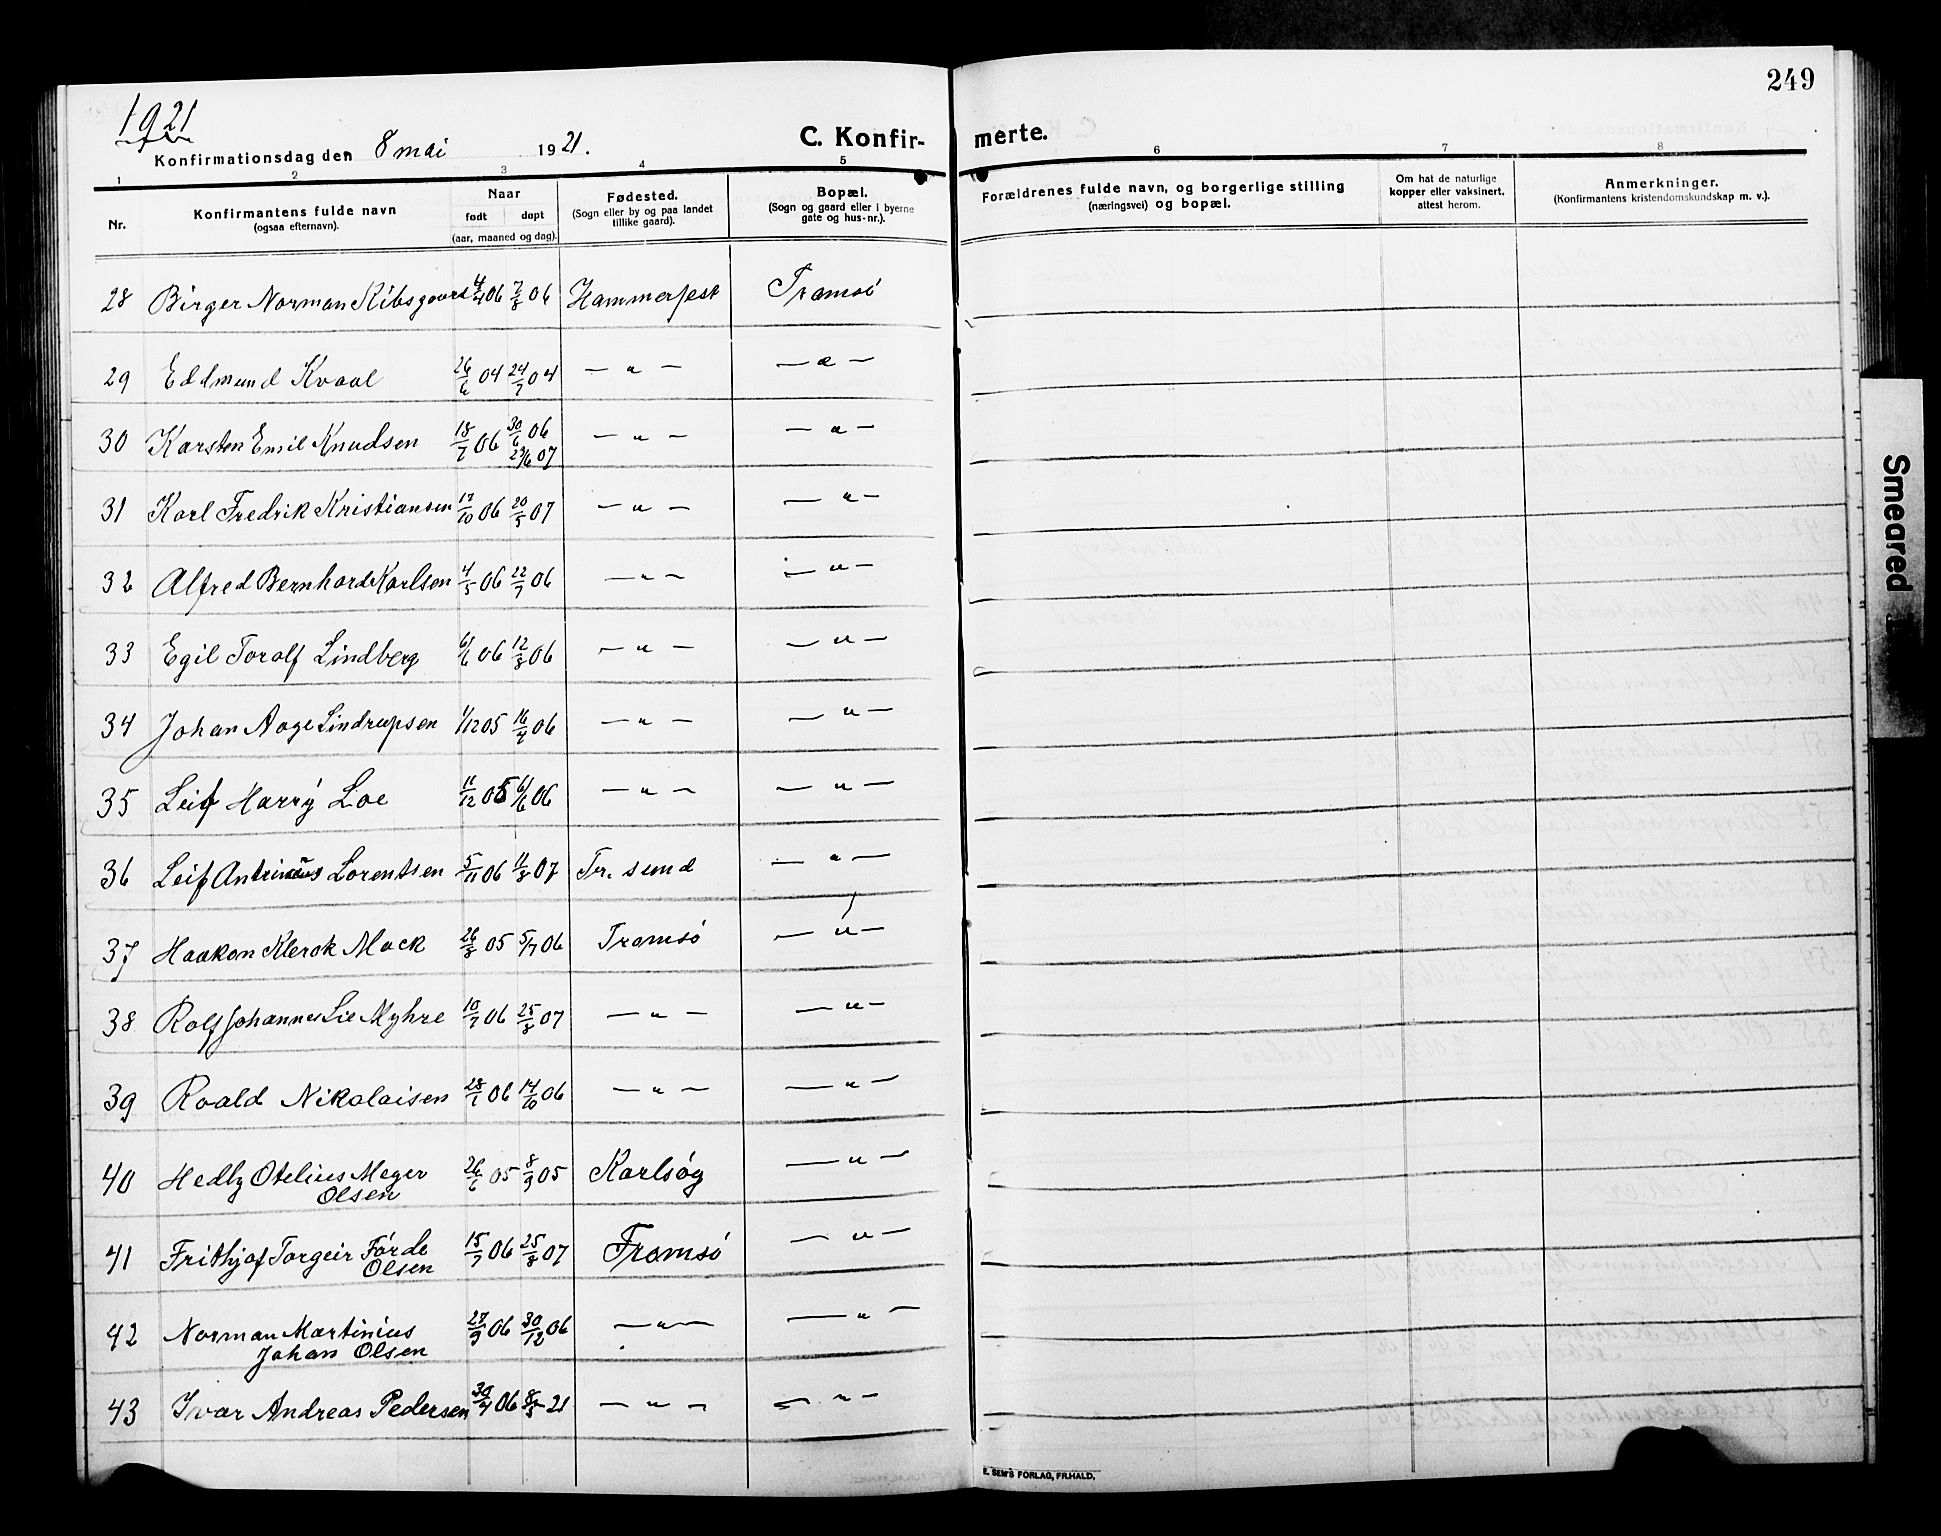 249
1921
Konfirmationsdag den 8 mai 1921.
C. Konfir-
merte.
1 2 3 4 5 6 7 8
Nr.
Konfirmantens fulde navn
(ogsaa efternavn).
Naar
født døpt
(aar, maaned og dag).
Fødested.
(Sogn eller by og paa landet
tillike gaard).
Bopæl.
(Sogn og gaard eller i byerne
gate og hus-nr.).
Forældrenes fulde navn, og borgerlige stilling
(næringsvei) og bopæl.
Om hat de naturlige
kopper eller vaksinert,
attest herom.
Anmerkninger.
(Konfirmantens kristendomskundskap m. v.).
28 Birger Norman Kibsgaard 4/4 06 7/8 06 Hammerfest Tromsö
29 Eddmund Kvaal 26/6 04 24/7 04 — " — — " —
30 Karsten Emil Knudsen 18/7 06 30/6 06 — " — — " —
23/6 07
31 Karl Fredrik Kristiansen 17/10 06 20/5 07 — " — — " —
32 Alfred Bernhard Karlsen 4/5 06 22/7 06 — " — — " —
33 Egil Toralf Lindberg 6/6 06 12/8 06 — " — — " —
34 Johan Aage Lindrupsen 1/12 05 16/4 06 — " — — " —
35 Leif Harry Loe 11/12 05 6/6 06 — " — — " —
36 Leif Lorentsen 5/11 06 11/8 07 Tr. sund — " —
37 Haakon Klerck Mack 26/8 05 5/7 06 Tromsö — " —
38 Rolf Johannes Lie Myhre 10/7 06 25/8 07 — " — — " —
39 Roald Nikolaisen 28/1 06 14/10 06 — " — — " —
40 Hedly Otelius Meyer 26/6 05 8/9 05 Karlsöy — " —
Olsen
41 Frithjof Torgeir Förde 15/7 06 25/8 07 Tromsö — " —
Olsen
42 Norman Martinius 27/9 06 30/12 06 — " — — " —
Johan Olsen
43 Ivar Andreas Pedersen 30/4 06 8/5 21 — " — — " —
E. SEM'S FORLAG, FR.HALD.
Smeared